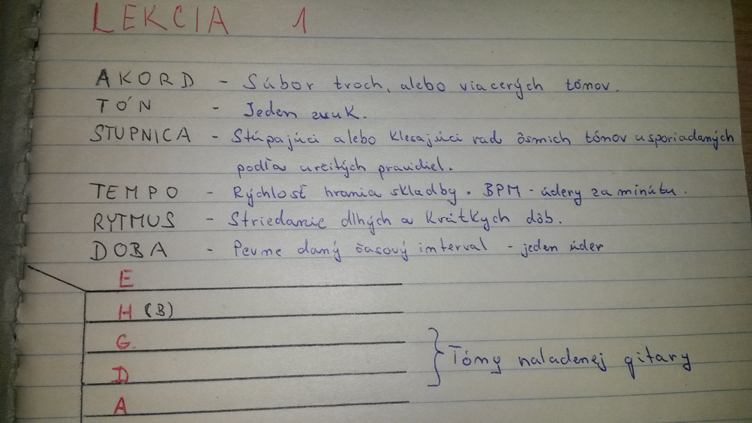 LEKCIA 1
AKORD - Súbor troch, alebo viacerých tónov.
TÓN - Jeden zvuk.
STUPNICA - Stúpajúci alebo klesajúci rad ôsmich tónov usporiadaných
podľa určitých pravidiel.
TEMPO - Rýchlosť hrania skladby. BPM - údery za minútu.
RYTMUS - Striedanie dlhých a krátkych dôb.
DOBA - Pevne daný časový interval - jeden úder
E
H (B)
G
D
A
Tóny naladenej gitary